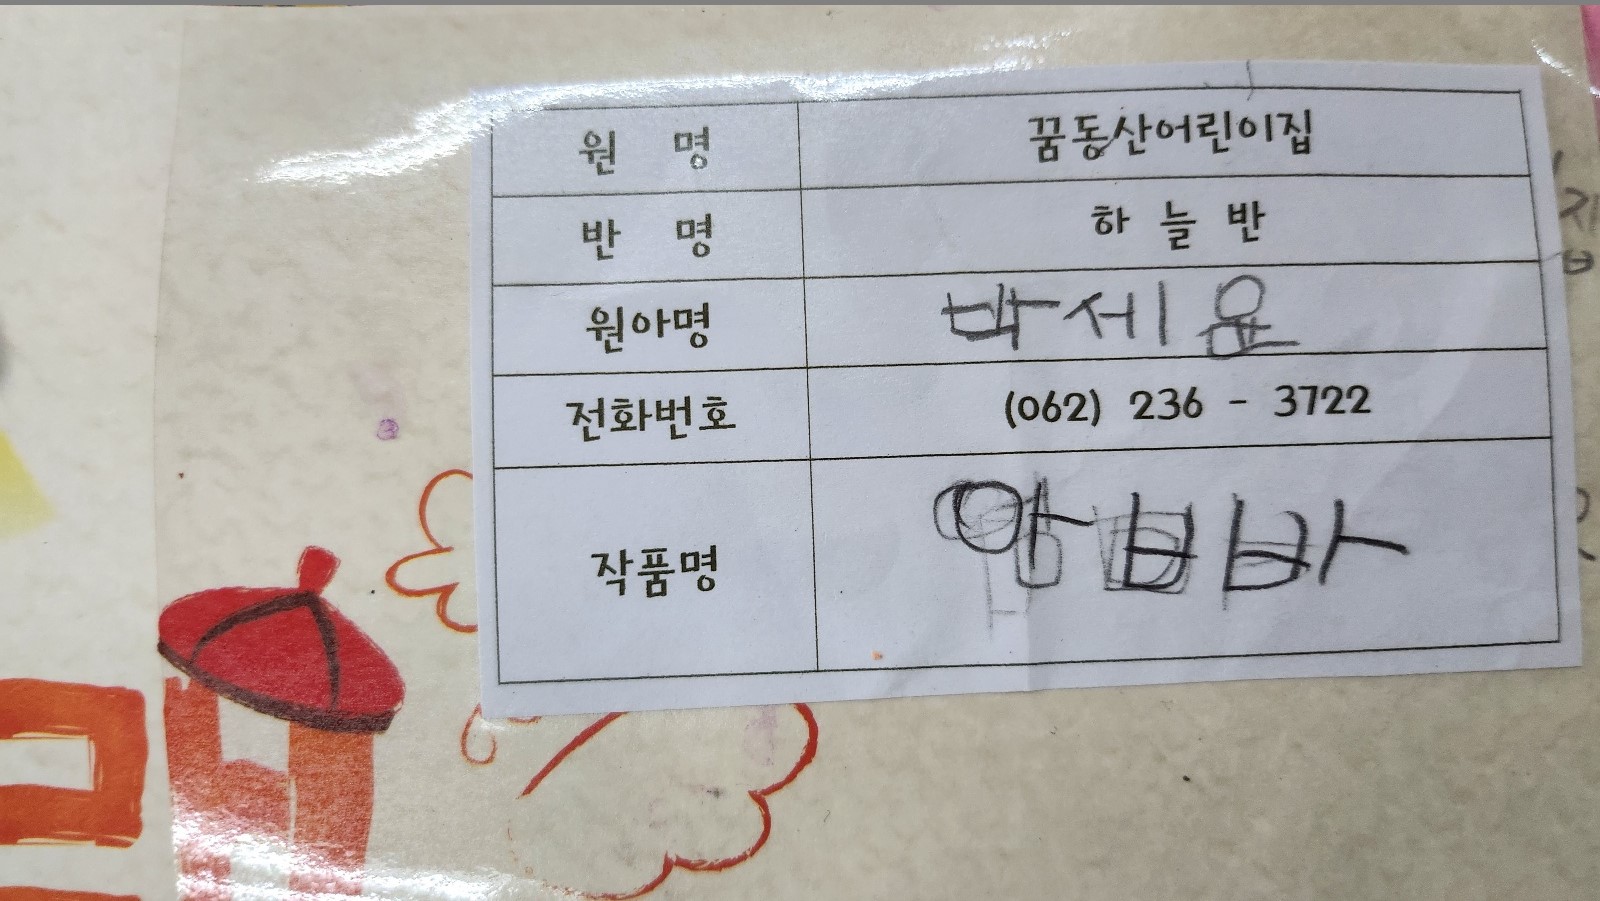 원 명 꿈동산어린이집
반 명 하 늘 반
원아명 박세윤
전화번호 (062) 236 - 3722
작품명